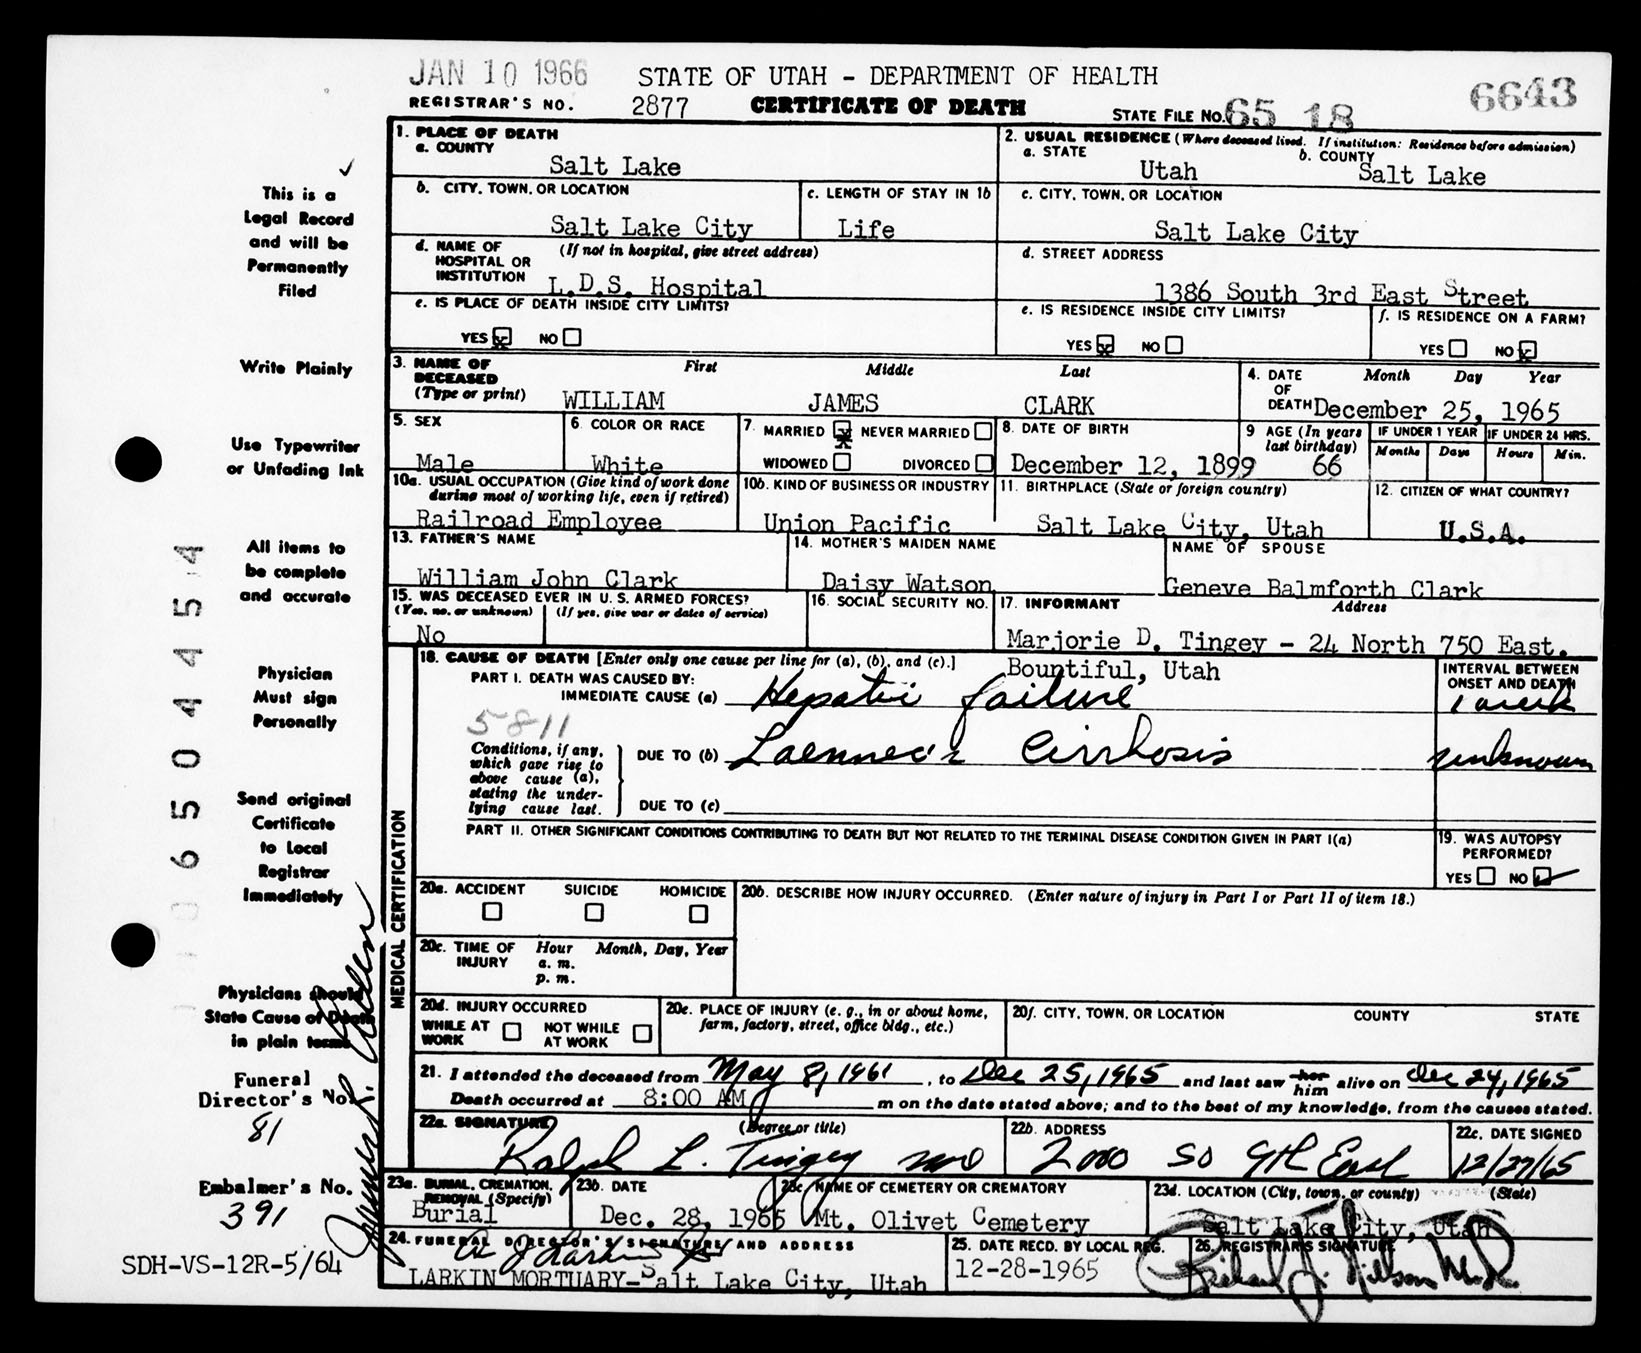 JAN 10 1966 STATE OF UTAH - DEPARTMENT OF HEALTH 6643
REGISTRAR'S NO. 2877 CERTIFICATE OF DEATH STATE FILE NO. 65 18
1. PLACE OF DEATH
a. COUNTY
Salt Lake
2. USUAL RESIDENCE (Where deceased lived. If institution: Residence before admission)
a. STATE b. COUNTY
Utah Salt Lake
b. CITY, TOWN, OR LOCATION
Salt Lake City
c. LENGTH OF STAY IN 1b
Life
c. CITY, TOWN, OR LOCATION
Salt Lake City
d. NAME OF HOSPITAL OR INSTITUTION (If not in hospital, give street address)
L.D.S. Hospital
d. STREET ADDRESS
1386 South 3rd East Street
e. IS PLACE OF DEATH INSIDE CITY LIMITS?
YES x NO
e. IS RESIDENCE INSIDE CITY LIMITS?
YES x NO
f. IS RESIDENCE ON A FARM?
YES NO x
3. NAME OF DECEASED (Type or print) First Middle Last
WILLIAM JAMES CLARK
4. DATE OF DEATH Month Day Year
December 25, 1965
5. SEX
Male
6. COLOR OR RACE
White
7. MARRIED x NEVER MARRIED
WIDOWED DIVORCED
8. DATE OF BIRTH
December 12, 1899
9 AGE (In years last birthday)
66
IF UNDER 1 YEAR IF UNDER 24 HRS.
Months Days Hours Min.
10a. USUAL OCCUPATION (Give kind of work done during most of working life, even if retired)
Railroad Employee
10b. KIND OF BUSINESS OR INDUSTRY
Union Pacific
11. BIRTHPLACE (State or foreign country)
Salt Lake City, Utah
12. CITIZEN OF WHAT COUNTRY?
U.S.A.
13. FATHER'S NAME
William John Clark
14. MOTHER'S MAIDEN NAME
Daisy Watson
NAME OF SPOUSE
Geneve Balmforth Clark
15. WAS DECEASED EVER IN U. S. ARMED FORCES?
(Yes, no, or unknown) (If yes, give war or dates of service)
No
16. SOCIAL SECURITY NO.
17. INFORMANT Address
Marjorie D. Tingey - 24 North 750 East.
Bountiful, Utah
MEDICAL CERTIFICATION
18. CAUSE OF DEATH [Enter only one cause per line for (a), (b), and (c).]
INTERVAL BETWEEN ONSET AND DEATH
PART I. DEATH WAS CAUSED BY:
IMMEDIATE CAUSE (a) Hepatic failure 1 week
5811
Conditions, if any, which gave rise to above cause (a), stating the underlying cause last.
DUE TO (b) Laennec's Cirrhosis unknown
DUE TO (c)
PART II. OTHER SIGNIFICANT CONDITIONS CONTRIBUTING TO DEATH BUT NOT RELATED TO THE TERMINAL DISEASE CONDITION GIVEN IN PART I(a)
19. WAS AUTOPSY PERFORMED?
YES NO ✓
20a. ACCIDENT SUICIDE HOMICIDE
20b. DESCRIBE HOW INJURY OCCURRED. (Enter nature of injury in Part I or Part II of item 18.)
20c. TIME OF INJURY Hour Month, Day, Year
a. m.
p. m.
20d. INJURY OCCURRED
WHILE AT WORK NOT WHILE AT WORK
20e. PLACE OF INJURY (e. g., in or about home, farm, factory, street, office bldg., etc.)
20f. CITY, TOWN, OR LOCATION COUNTY STATE
21. I attended the deceased from May 8, 1961, to Dec 25, 1965 and last saw her him alive on Dec 24, 1965
Death occurred at 8:00 AM m on the date stated above; and to the best of my knowledge, from the causes stated.
22a. SIGNATURE (Degree or title)
Ralph L. Tingey MD
22b. ADDRESS
2000 So 9th East
22c. DATE SIGNED
12/27/65
23a. BURIAL, CREMATION, REMOVAL (Specify)
Burial
23b. DATE
Dec. 28, 1965
23c NAME OF CEMETERY OR CREMATORY
Mt. Olivet Cemetery
23d. LOCATION (City, town, or county) (State)
Salt Lake City, Utah
24. FUNERAL DIRECTOR'S SIGNATURE AND ADDRESS
LARKIN MORTUARY-Salt Lake City, Utah
25. DATE RECD. BY LOCAL REG.
12-28-1965
26. REGISTRAR'S SIGNATURE
This is a
Legal Record
and will be
Permanently
Filed
Write Plainly
Use Typewriter
or Unfading Ink
All items to
be complete
and accurate
Physician
Must sign
Personally
Send original
Certificate
to Local
Registrar
Immediately
Physicians should
State Cause of Death
in plain terms
Funeral
Director's No.
81
Embalmer's No.
391
SDH-VS-12R-5/64
06504454
James R.